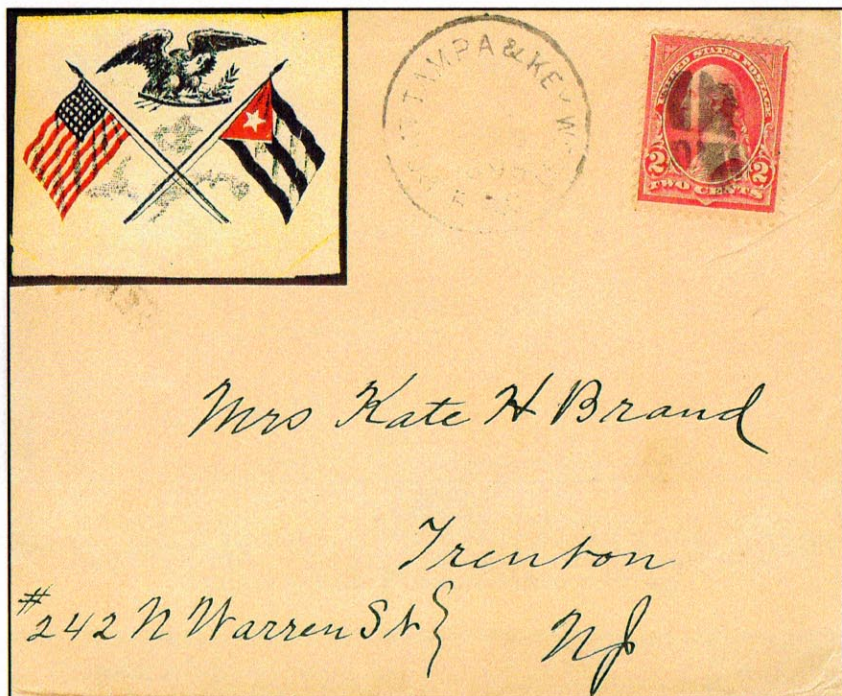 TAMPA & KEY W
UNITED STATES POSTAGE
2 2
TWO CENTS
Mrs Kate H Brand
Trenton
#242 N Warren St
NJ